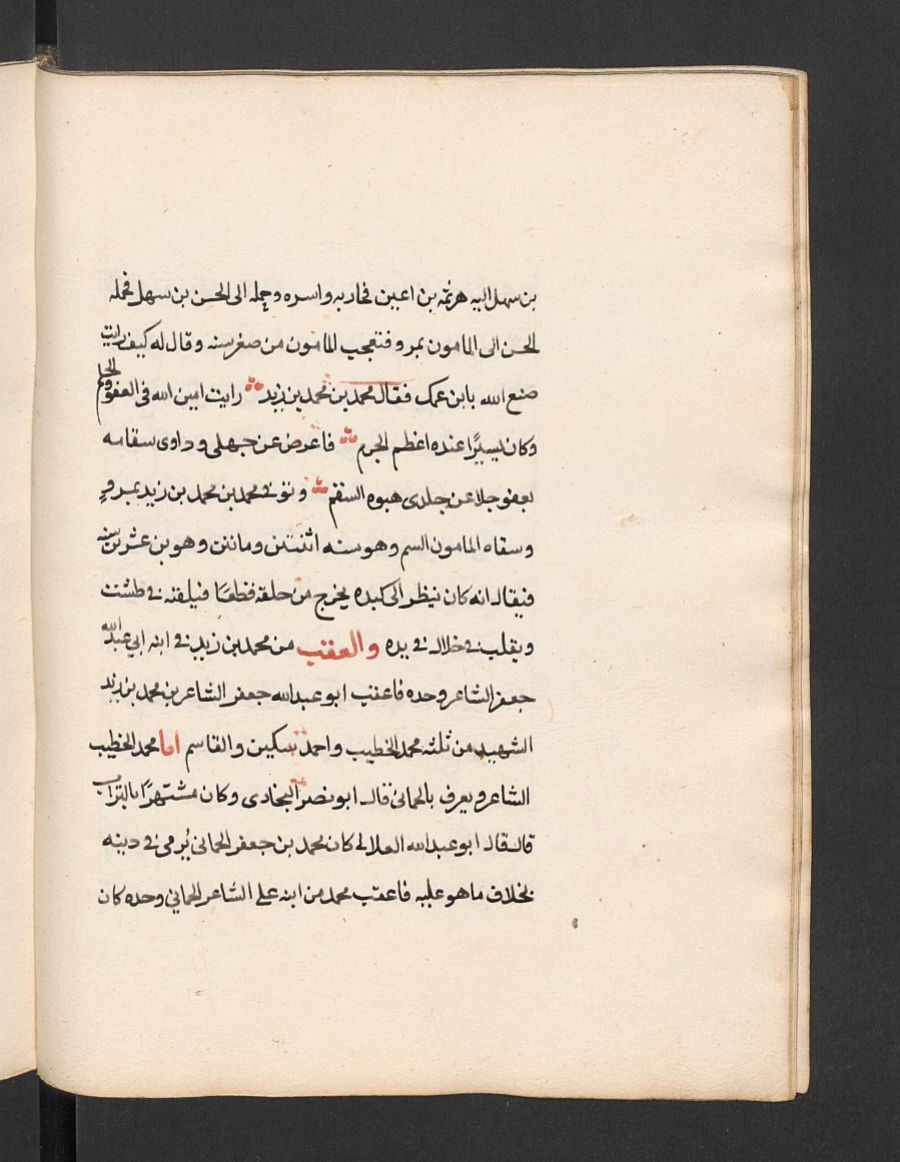 بن سهل اليه هرثمه بن اعين فحاربه واسره وحمله الى الحسن بن سهل فحمله
الحسن الى المامون بمرو فتعجب المامون من صغر سنه وقال له كيف رايت
صنع الله بابن عمك فقال محمد بن محمد بن زيد رايت امين الله فى العفو والحلم
وكان يسيرًا عنده اعظم الجرم فاعرض عن جهلى وداوى سقامه
بعفو جلا عن جلدى هبوه السقم وتوفى محمد بن محمد بن زيد بمرو
وسقاه المامون السم وهو سنه اثنتين وماتين وهو بن عشرين سنه
فيقال انه كان ينظر الى كبده يخرج من حلقه قطعًا فيلقنه فى طشت
ويقلبه فى خلال فى يده والعقب من محمد بن زيد فى ابنه ابى عبدالله
جعفر الشاعر وحده فاعقب ابو عبدالله جعفر الشاعر بن محمد بن زيد
الشهيد من ثلثه محمد الخطيب واحمد سكين والقاسم اما محمد الخطيب
الشاعر ويعرف بالحمانى قال ابو نصر البخارى وكان مشتهرًا بالتراب
قال قال ابو عبدالله العلالى كان محمد بن جعفر الحمانى يُرمى فى دينه
بخلاف ما هو عليه فاعقب محمد من ابنه على الشاعر الحمانى وحده كان